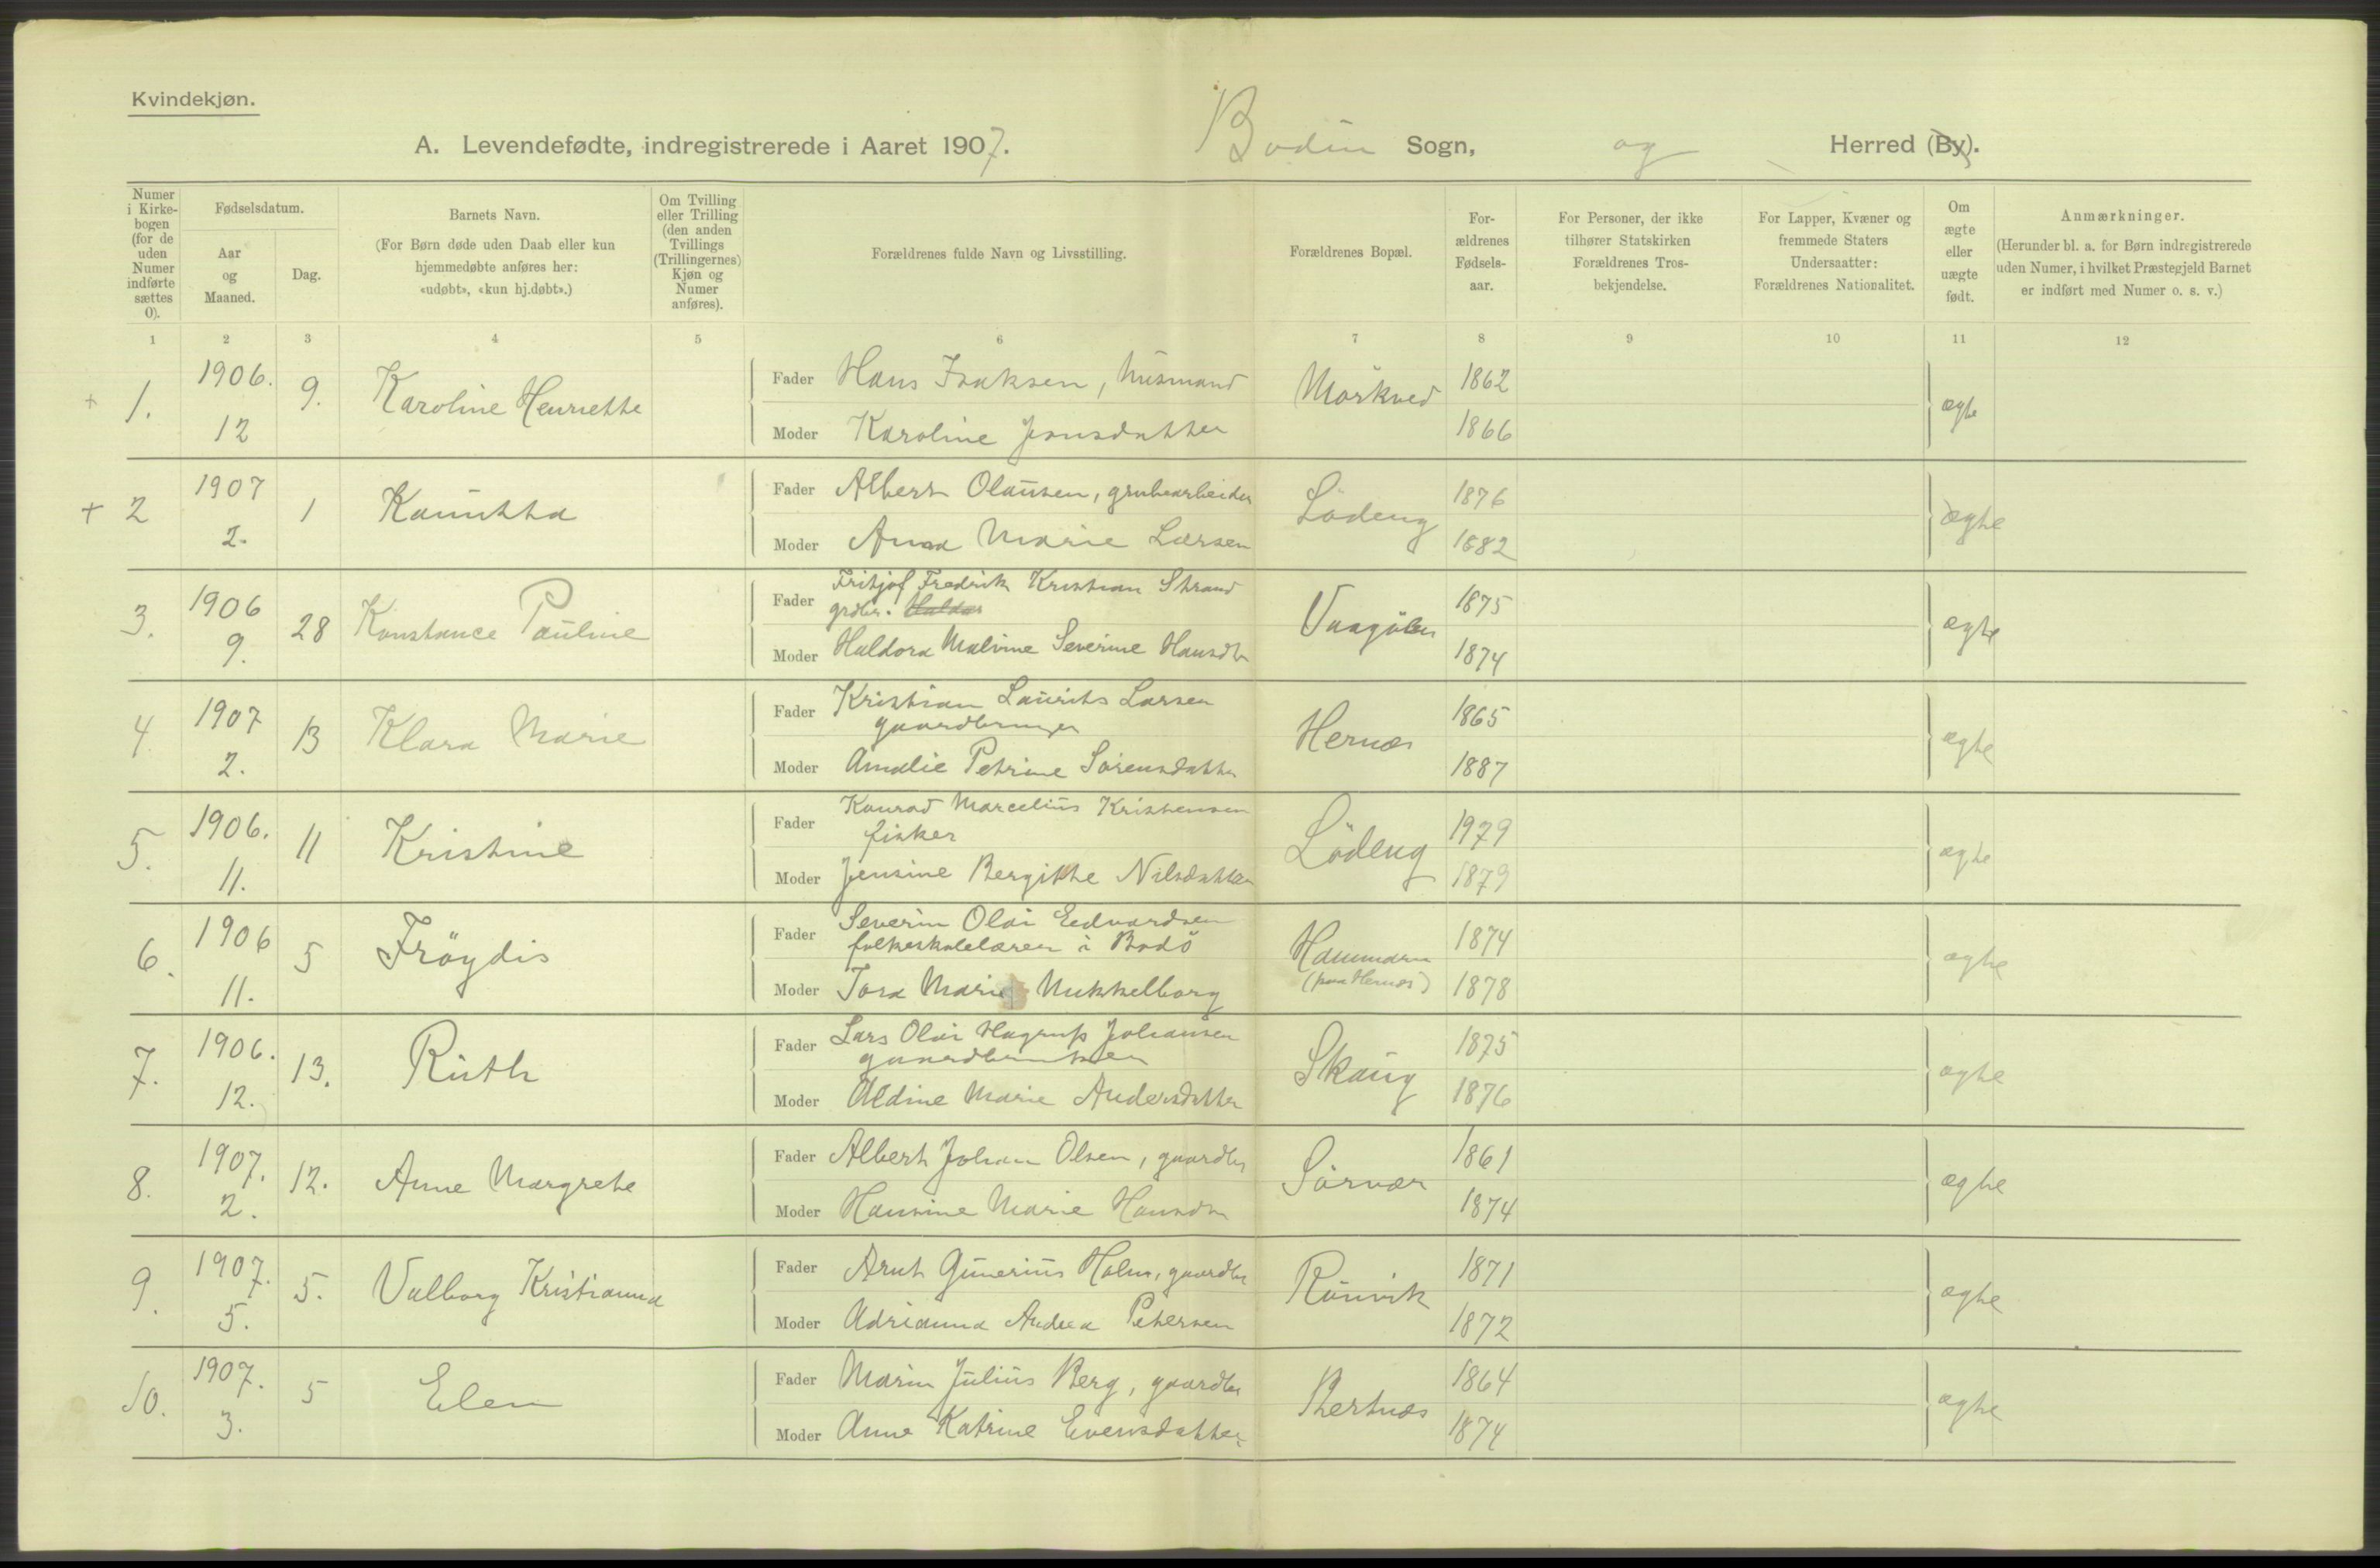 Kvindekjøn.
A. Levendefødte, indregistrerede i Aaret 1907. Bodin Sogn, og Herred (By).
Numer i Kirkebogen (for de uden Numer indførte sættes 0).
Fødselsdatum.
Aar og Maaned.
Dag.
Barnets Navn.
(For Børn døde uden Daab eller kun hjemmedøbte anføres her: «udøbt», «kun hj.døbt».)
Om Tvilling eller Trilling (den anden Tvillings (Trillingernes) Kjøn og Numer anføres).
Forældrenes fulde Navn og Livsstilling.
Forældrenes Bopæl.
For-ældrenes Fødsels-aar.
For Personer, der ikke tilhører Statskirken Forældrenes Tros-bekjendelse.
For Lapper, Kvæner og fremmede Staters Undersaatter: Forældrenes Nationalitet.
Om ægte eller uægte født.
Anmærkninger.
(Herunder bl. a. for Børn indregistrerede uden Numer, i hvilket Præstegjeld Barnet er indført med Numer o. s. v.)
1 2 3 4 5 6 7 8 9 10 11 12
+ 1. 1906. 12 9. Karoline Henriette
Fader Hans Isaksen, husmand Mörkved 1862 ægte
Moder Karoline Jonsdatter 1866
+ 2 1907 2. 1
Fader Albert Olausen, grubearbeider Lödeng 1876 ægte
Moder Anna Marie Larsen 1882
3. 1906 9. 28 Konstance Pauline
Fader Fritjof Fredrik Kristian Strand
grdbr. Haldor 1875 ægte
Moder Haldora Malvine Severine Hansdtr 1874
4 1907 2. 13 Klara Marie
Fader Kristian Laurits Larsen
gaardbruger Hernæs 1865 ægte
Moder Amalie Petrine Sörensdatter 1887
5. 1906. 11. 11 Kristine
Fader Konrad Marcelius Kristensen
fisker Lödeng 1979 ægte
Moder Jensine Bergitte Nilsdatter 1879
6. 1906 11. 5 Fröydis
Fader Severin Olai Edvardsen
folkeskolelærer i Bodö Hammaren 1874 ægte
Moder Tora Marie (paa Hernæs) 1878
7. 1906. 12. 13. Ruth
Fader Lars Olai Hagrup Johansen
gaardbruker Skaug 1875 ægte
Moder Aldine Marie Andersdatter 1876
8. 1907. 2. 12. Anne Margrete
Fader Albert Johan Olsen, gaardbr Sörvær 1861 ægte
Moder Hansine Marie Hansdtr 1874
9. 1907. 5. 5. Valborg Kristianna
Fader Arnt Gunerius Holm, gaardbr Rönvik 1871 ægte
Moder Adrianna Andrea Petersen 1872
10. 1907. 3. 5 Elen
Fader Marin Julius Berg, gaardbr Bertnæs 1864 ægte
Moder Anna Katrine Evensdatter 1874